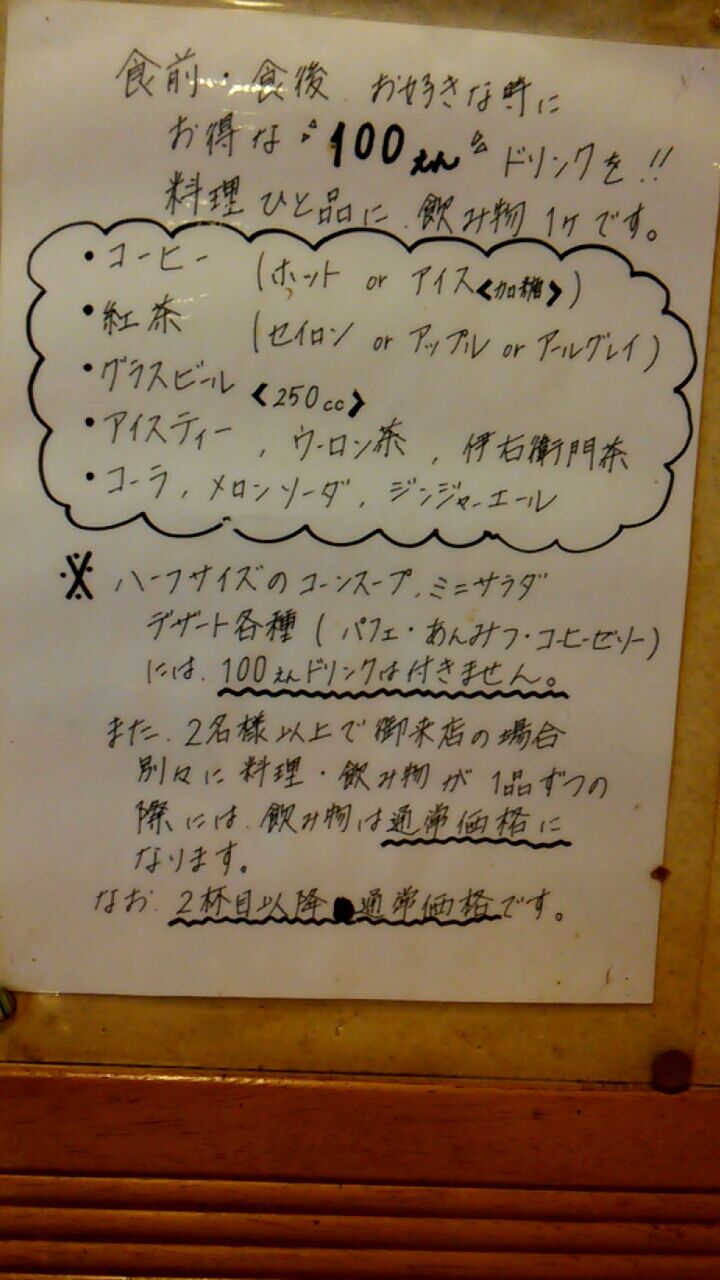 食前・食後 お好きな時に
お得な〝100えん〟ドリンクを!!
料理ひと品に、飲み物1ヶです。
・コーヒー (ホット or アイス<加糖>)
・紅茶 (セイロン or アップル or アールグレイ)
・グラスビール <250cc>
・アイスティー、ウーロン茶、伊右衛門茶
・コーラ、メロンソーダ、ジンジャーエール
※ ハーフサイズのコーンスープ、ミニサラダ
デザート各種(パフェ・あんみつ・コーヒーゼリー)
には、100えんドリンクは付きません。
また、2名様以上で御来店の場合
別々に料理・飲み物が1品ずつの
際には、飲み物は通常価格に
なります。
なお、2杯目以降●通常価格です。